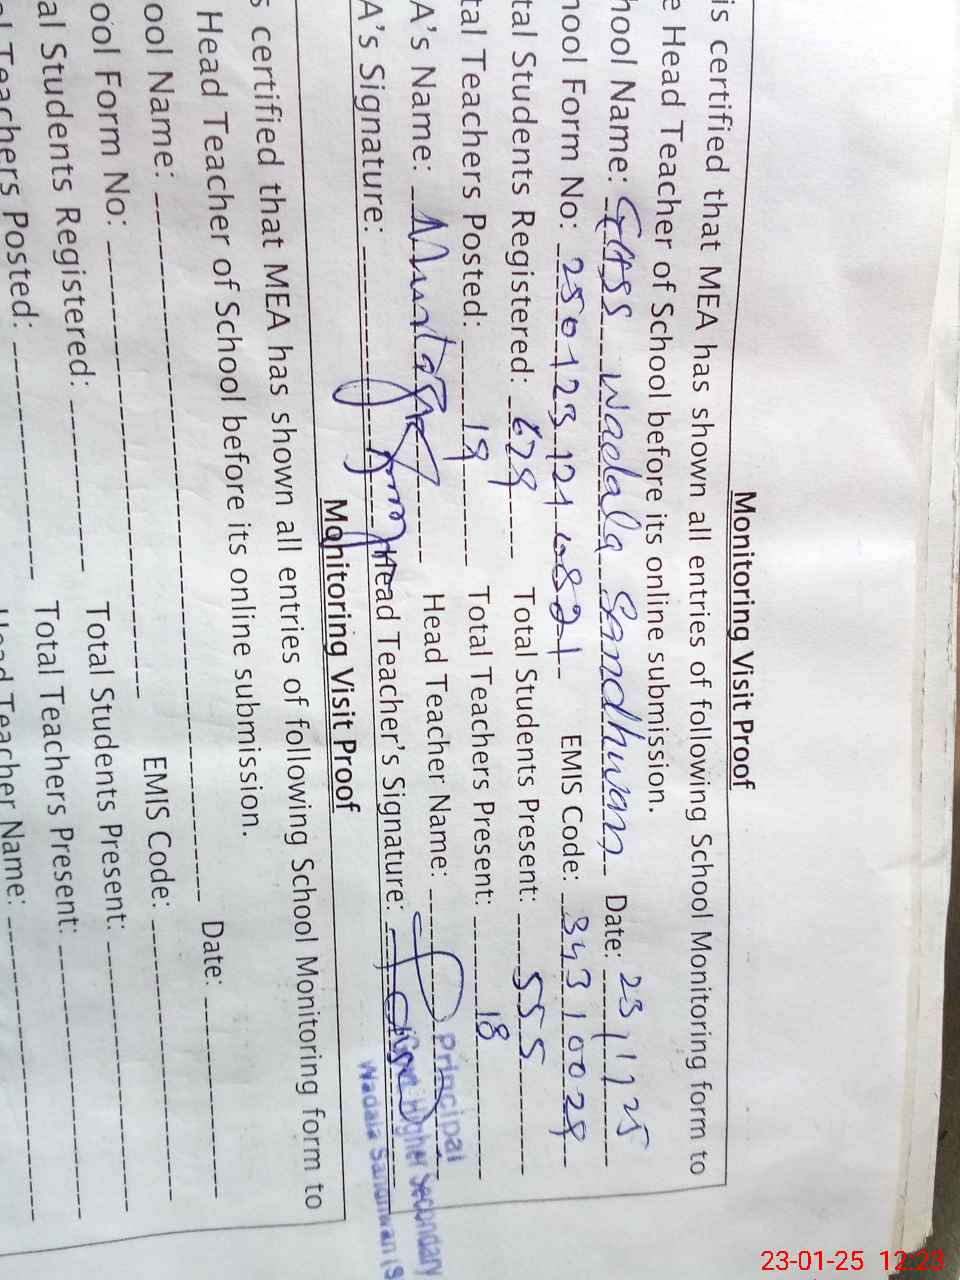 Monitoring Visit Proof
is certified that MEA has shown all entries of following School Monitoring form to
e Head Teacher of School before its online submission.
hool Name: GHSS Wadala Sandhwan Date: 23/1/25
hool Form No: 2501231210821 EMIS Code: 34310029
tal Students Registered: 629 Total Students Present: 555
tal Teachers Posted: 19 Total Teachers Present: 18
A's Name: Head Teacher Name:
A's Signature: Head Teacher's Signature:
Principal
Govt Higher Secondary
Wadala Sandhwan
Monitoring Visit Proof
s certified that MEA has shown all entries of following School Monitoring form to
Head Teacher of School before its online submission.
ool Name: Date:
ool Form No: EMIS Code:
al Students Registered: Total Students Present:
al Teachers Posted: Total Teachers Present:
Head Teacher Name:
23-01-25 12:23